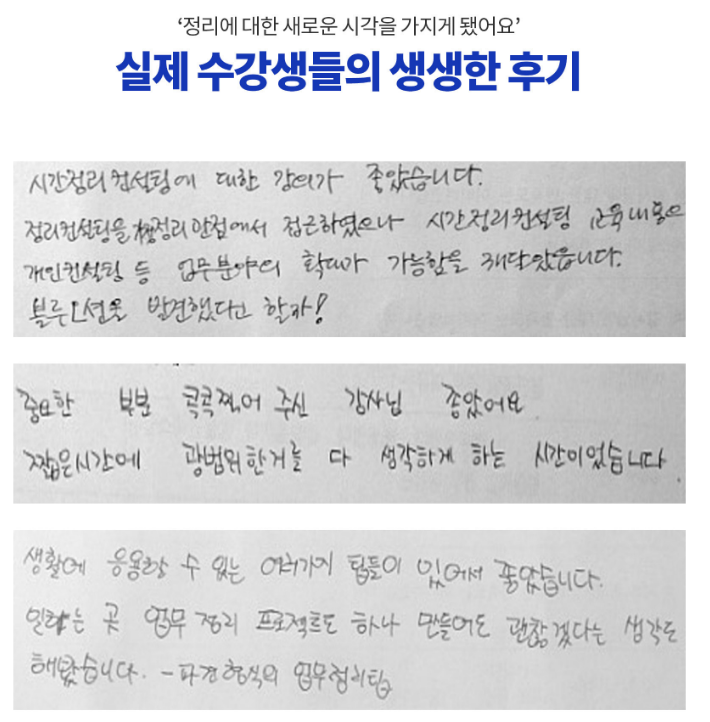 ‘정리에 대한 새로운 시각을 가지게 됐어요’
실제 수강생들의 생생한 후기
시간정리컨설팅에 대한 강의가 좋았습니다.
정리컨설팅을 정리관점에서 접근하였으나 시간정리컨설팅 교육내용은
개인컨설팅 등 업무분야의 확대가 가능함을 깨달았습니다.
블루오션을 발견했다고 할까!
중요한 부분 콕콕찍어 주신 강사님 좋았어요
짧은시간에 광범위한거늘 다 생각하게 하는 시간이었습니다.
생활에 응용할 수 있는 여러가지 팁들이 있어서 좋았습니다.
일하는 곳 업무 정리 프로젝트도 하나 만들어도 괜찮겠다는 생각도
해봤습니다. - 파견형식의 업무정리팀